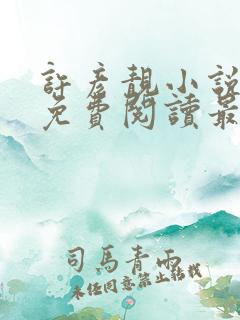 許彥靚小說
免費閱讀最
司馬青雨
未任同意禁止轉載